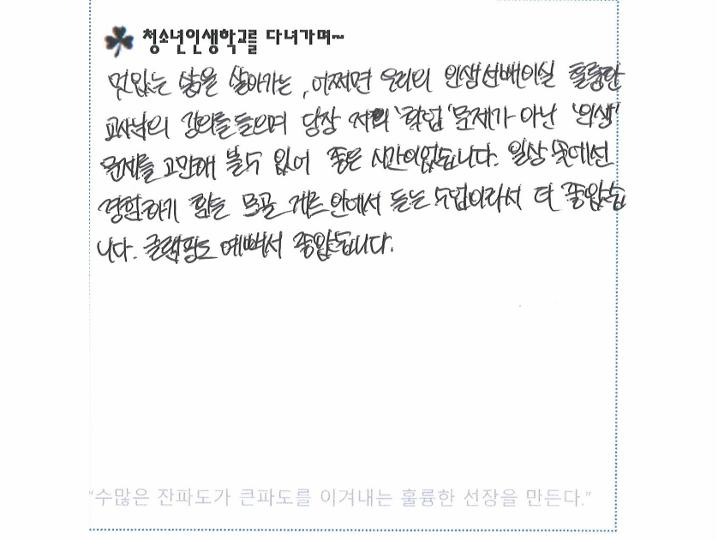 청소년인생학교를 다녀가며~
멋있는 삶을 살아가는, 어쩌면 우리의 인생선배이실 훌륭한
교사님의 강의를 들으며 당장 저의 '학업' 문제가 아닌 '인생'
문제를 고민해 볼 수 있어 좋은 시간이었습니다. 일상 속에선
경험하기 힘든 몽골 게르 안에서 듣는 수업이라서 더 좋았습
니다. 글램핑도 예뻐서 좋았습니다.
"수많은 잔파도가 큰파도를 이겨내는 훌륭한 선장을 만든다."